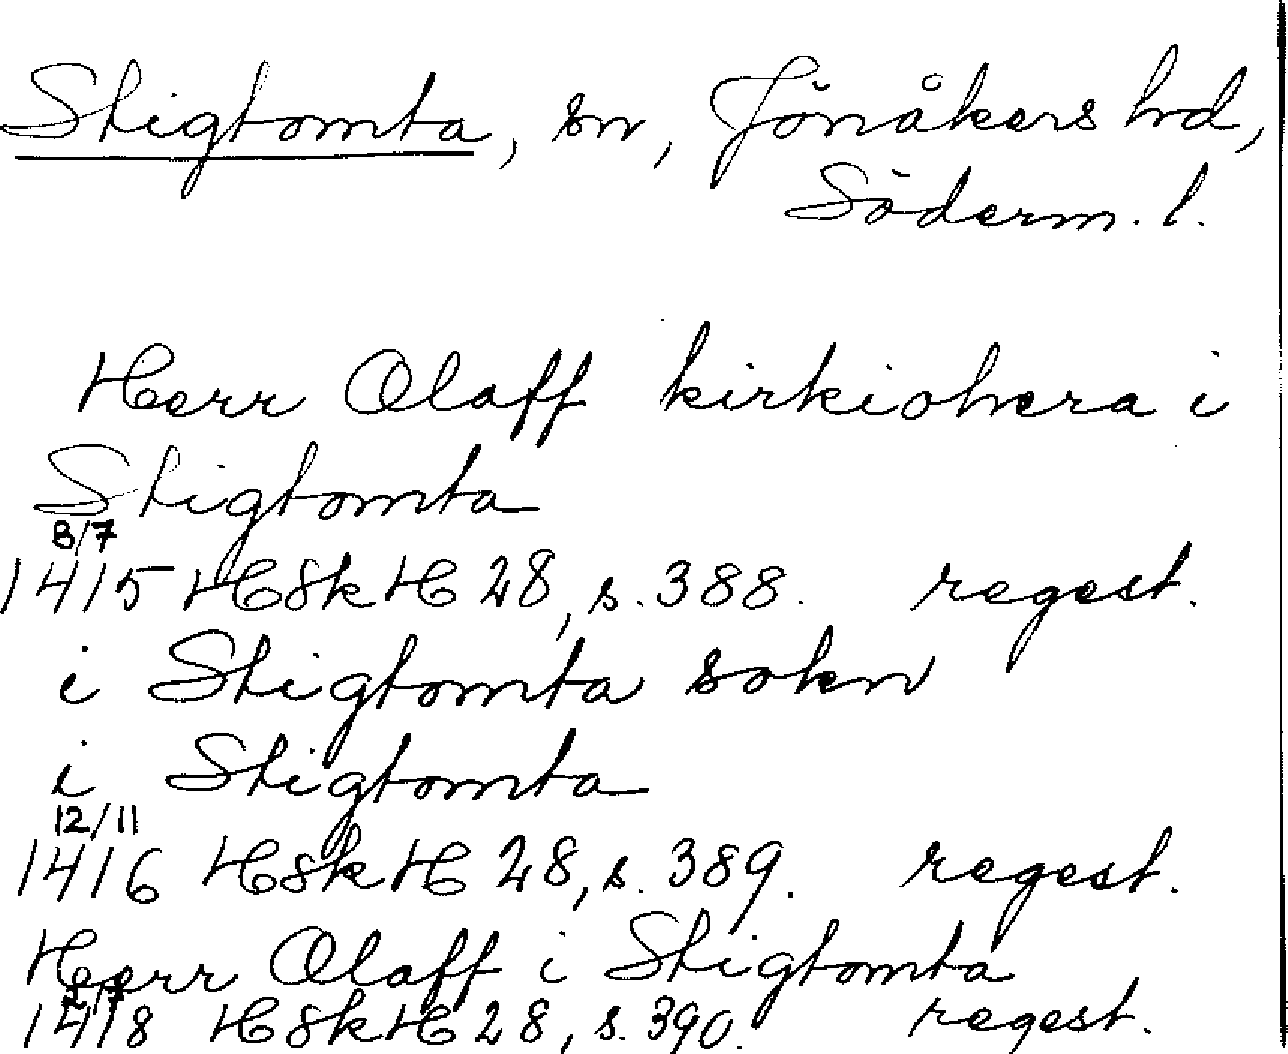 Stigtomta, sn, Jönåkers hd,
Söderm. l.
Herr Olaff kirkiohera i
Stigtomta
3/7
1415 HSkH 28, s. 388. regest.
i Stigtomta sokn
i Stigtomta
12/11
1416 HSkH 28, s. 389. regest.
Herr Olaff i Stigtomta
1418 HSkH 28, s. 390. regest.